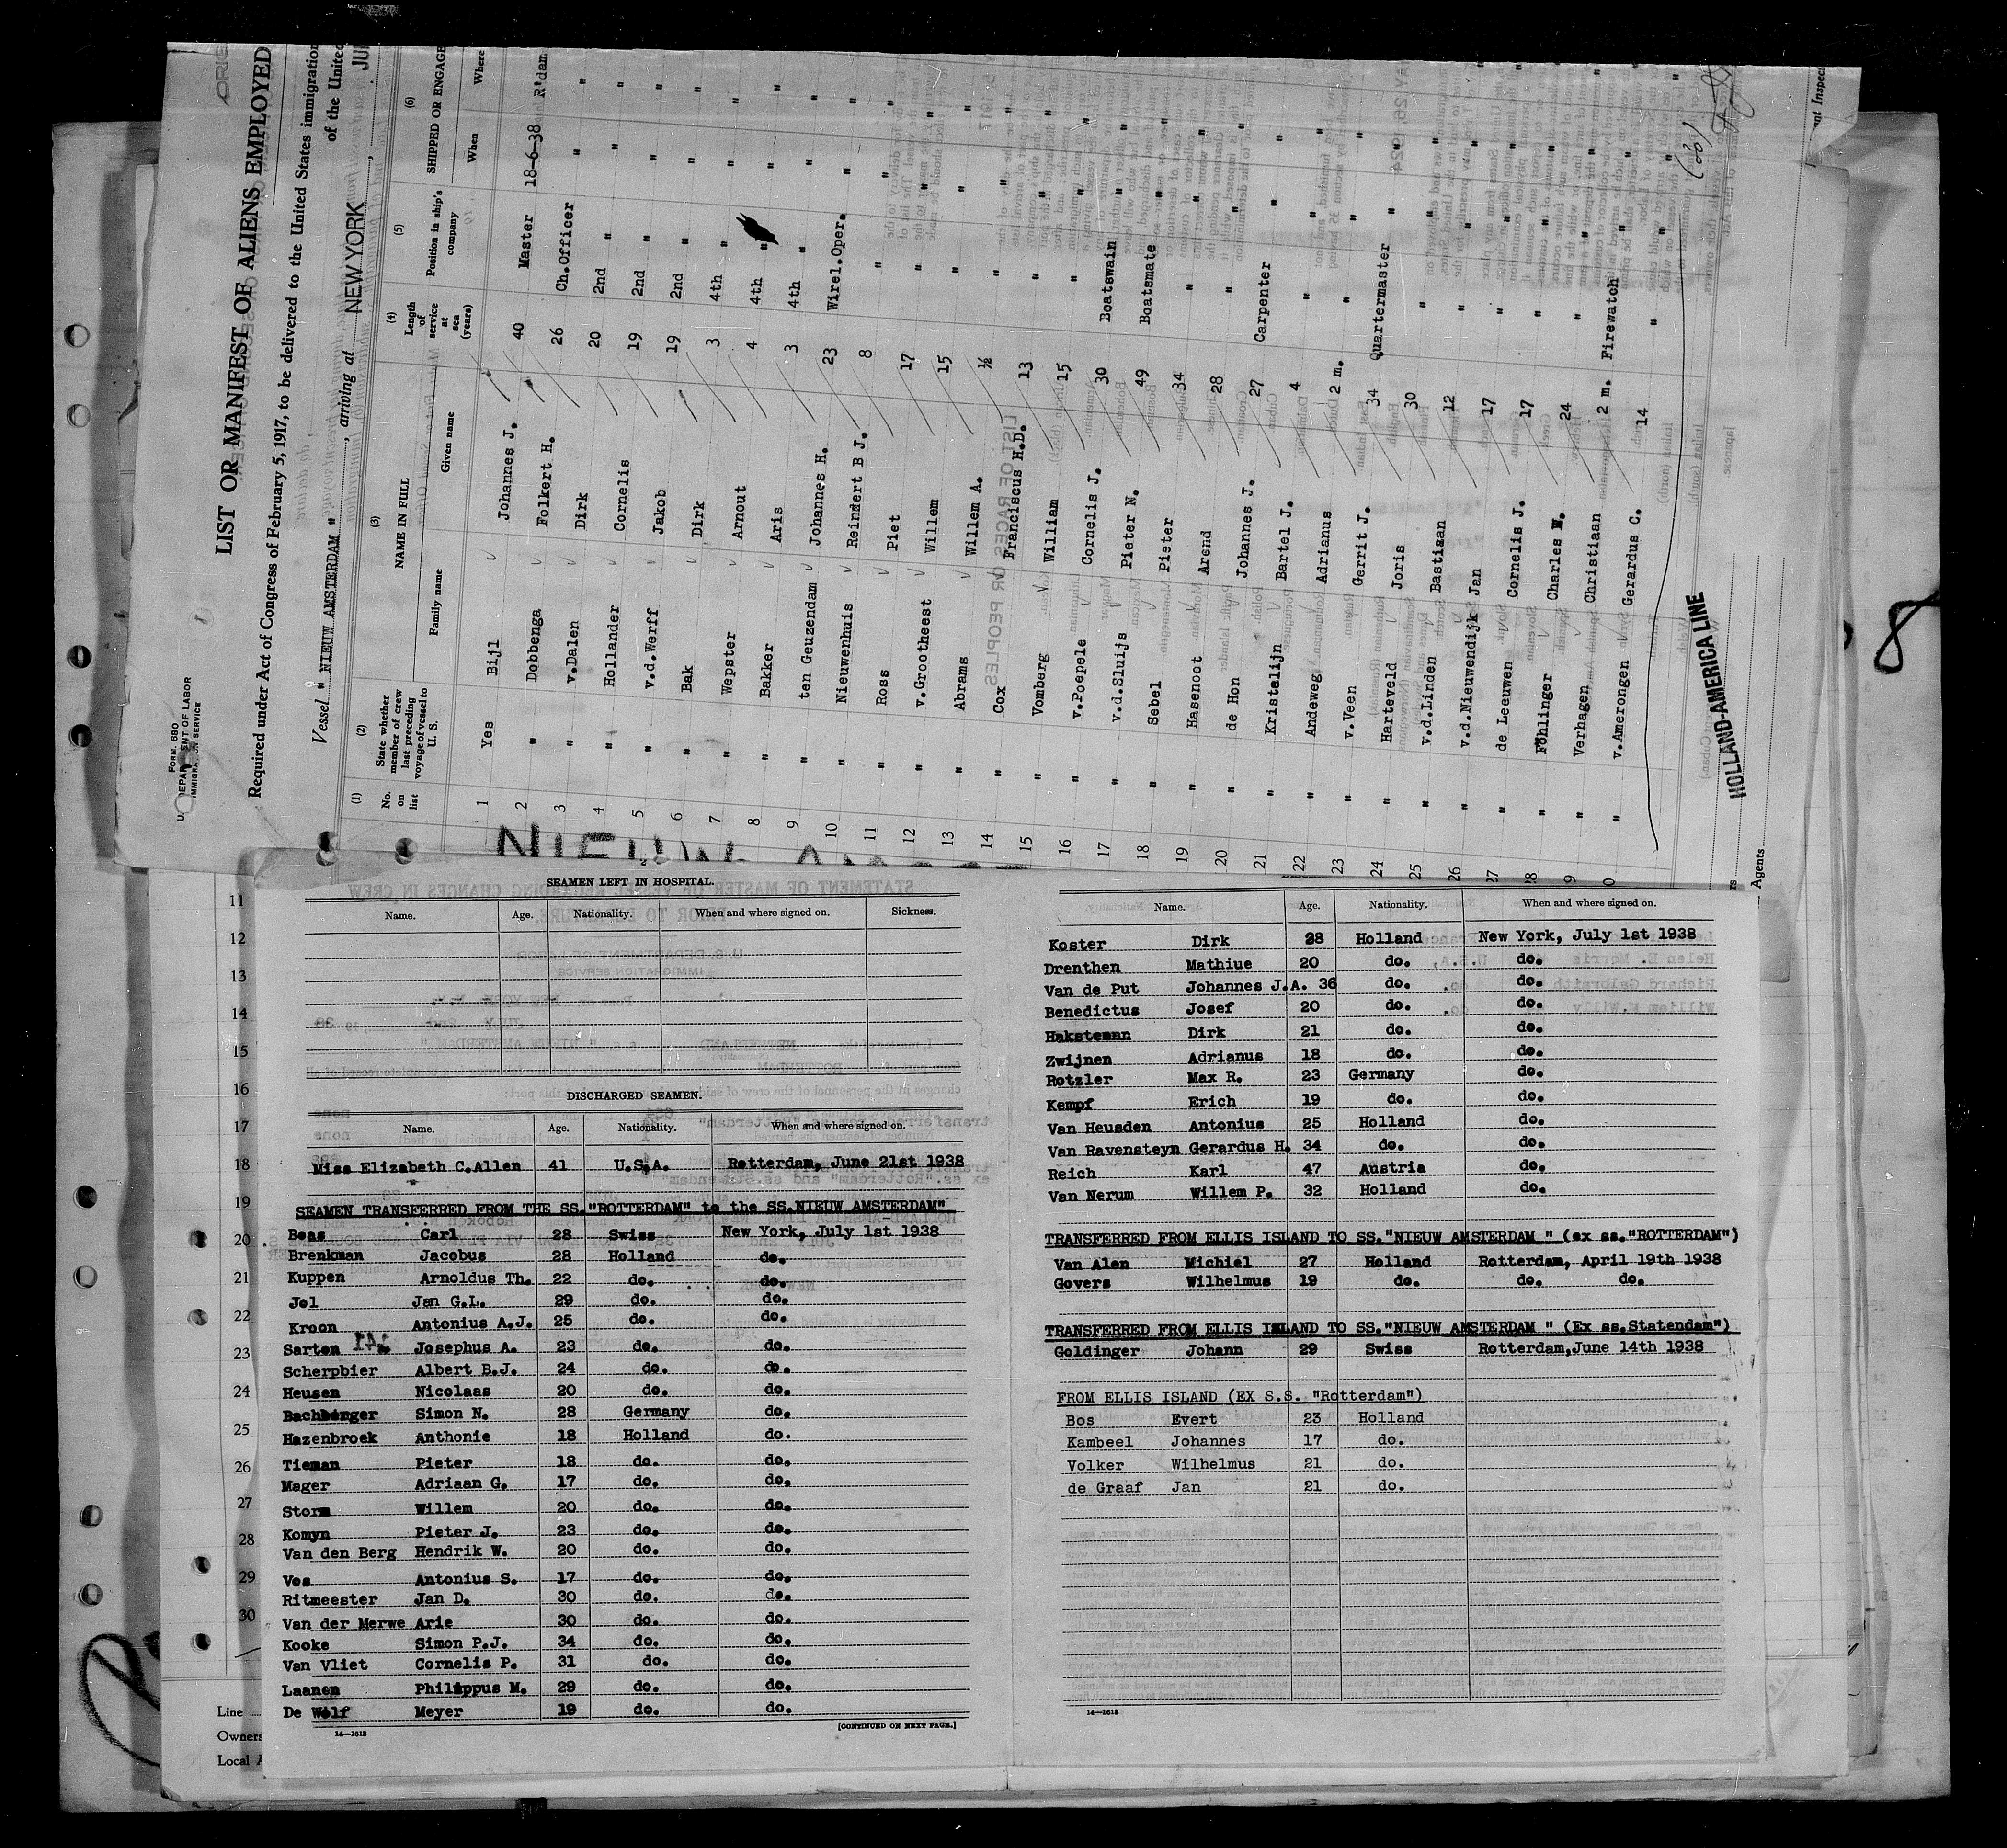 FORM 680
IMMIGRATION SERVICE
LIST OR MANIFEST OF ALIENS EMPLOYED
Required under Act of Congress of February 5, 1917, to be delivered to the United States immigration
of the United
Vessel " NIEUW AMSTERDAM " , arriving at NEW YORK ,
(1) (2) (3) (4) (5) (6)
No. on list State whether member of crew last preceding voyage of vessel to U. S. NAME IN FULL Length of service at sea (years) Position in ship's company SHIPPED OR ENGAGE
Family name Given name When Where
1 Yes Bijl Johannes J. 40 Master 18-6-38 R'dam
2 " Dobbenga Folkert H. 26 Ch.Officer " "
3 " v.Dalen Dirk 20 2nd " " "
4 " Hollander Cornelis 19 2nd " " "
5 " v.d.Werff Jakob 19 2nd " " "
6 " Bak Dirk 3 4th " " "
7 " Wepster Arnout 4 4th " " "
8 " Bakker Aris 3 4th " " "
9 " ten Geuzendam Johannes H. 23 Wirel.Oper. " "
10 " Nieuwenhuis Reindert B J. 8 " " "
11 " Ross Piet 17 " " "
12 " v.Grootheest Willem 15 " " "
13 " Abrams Willem A. ½ " " "
14 " Cox Franciscus H.D. 13 " " "
15 " Vomberg William 15 " " "
16 " v.Poepele Cornelis J. 30 Boatswain " "
17 " v.d.Sluijs Pieter N. 49 Boatsmate " "
18 " Sebel Pieter 34 " " "
19 " Hasenoot Arend 28 " " "
20 " de Hon Johannes J. 27 Carpenter " "
21 " Kristelijn Bartel J. 4 " " "
22 " Andeweg Adrianus 2 m. " " "
23 " v.Veen Gerrit J. 34 Quartermaster " "
24 " Harteveld Joris 30 " " "
25 " v.d.Linden Bastiaan 12 " " "
26 " v.d.Nieuwendijk Jan 17 " " "
27 " de Leeuwen Cornelis J. 17 " " "
28 " Föhlinger Charles M. 24 " " "
9 " Verhagen Christian 2 m. Firewatch " "
0 " v.Amerongen Gerardus C. 14 " " "
HOLLAND-AMERICA LINE
Agents
8
11
12
13
14
15
16
17
18
19
20
21
22
23
24
25
26
27
28
29
30
Line
Owners
Local A
SEAMEN LEFT IN HOSPITAL.
Name. Age. Nationality. When and where signed on. Sickness.
DISCHARGED SEAMEN.
Name. Age. Nationality. When and where signed on.
Miss Elizabeth C.Allen 41 U.S.A. Rotterdam, June 21st 1938
SEAMEN TRANSFERRED FROM THE SS."ROTTERDAM" to the SS.NIEUW AMSTERDAM"
Beas Carl 28 Swiss New York, July 1st 1938
Brenkman Jacobus 28 Holland do.
Kuppen Arnoldus Th. 22 do. do.
Jol Jan G.L. 29 do. do.
Kroon Antonius A.J. 25 do. do.
Sarton Josephus A. 23 do. do.
Scherpbier Albert B.J. 24 do. do.
Heusen Nicolaas 20 do. do.
Bachberger Simon N. 28 Germany do.
Hazenbroek Anthonie 18 Holland do.
Tieman Pieter 18 do. do.
Mager Adriaan G. 17 do. do.
Storm Willem 20 do. do.
Komyn Pieter J. 23 do. do.
Van den Berg Hendrik W. 20 do. do.
Vos Antonius S. 17 do. do.
Ritmeester Jan D. 30 do. do.
Van der Merwe Arie 30 do. do.
Kooke Simon P.J. 34 do. do.
Van Vliet Cornelis P. 31 do. do.
Laanen Philippus M. 29 do. do.
De Wolf Meyer 19 do. do.
14—1612 [CONTINUED ON NEXT PAGE.]
Name. Age. Nationality. When and where signed on.
Koster Dirk 28 Holland New York, July 1st 1938
Drenthen Mathiue 20 do. do.
Van de Put Johannes J.A. 36 do. do.
Benedictus Josef 20 do. do.
Haksteenn Dirk 21 do. do.
Zwijnen Adrianus 18 do. do.
Rotzler Max R. 23 Germany do.
Kempf Erich 19 do. do.
Van Heusden Antonius 25 Holland do.
Van Ravensteyn Gerardus H. 34 do. do.
Reich Karl 47 Austria do.
Van Nerum Willem P. 32 Holland do.
TRANSFERRED FROM ELLIS ISLAND TO SS."NIEUW AMSTERDAM " (ex ss."ROTTERDAM")
Van Alen Michiel 27 Holland Rotterdam, April 19th 1938
Govers Wilhelmus 19 do. do. do.
TRANSFERRED FROM ELLIS ISLAND TO SS."NIEUW AMSTERDAM " (Ex ss.Statendam")
Goldinger Johann 29 Swiss Rotterdam,June 14th 1938
FROM ELLIS ISLAND (EX S.S. "Rotterdam")
Bos Evert 23 Holland
Kambeel Johannes 17 do.
Volker Wilhelmus 21 do.
de Graaf Jan 21 do.
14—1612